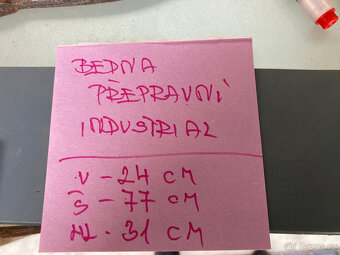 BEDNA
PŘEPRAVNÍ
INDUSTRIAL
V - 24 CM
Š - 77 CM
HL - 31 CM